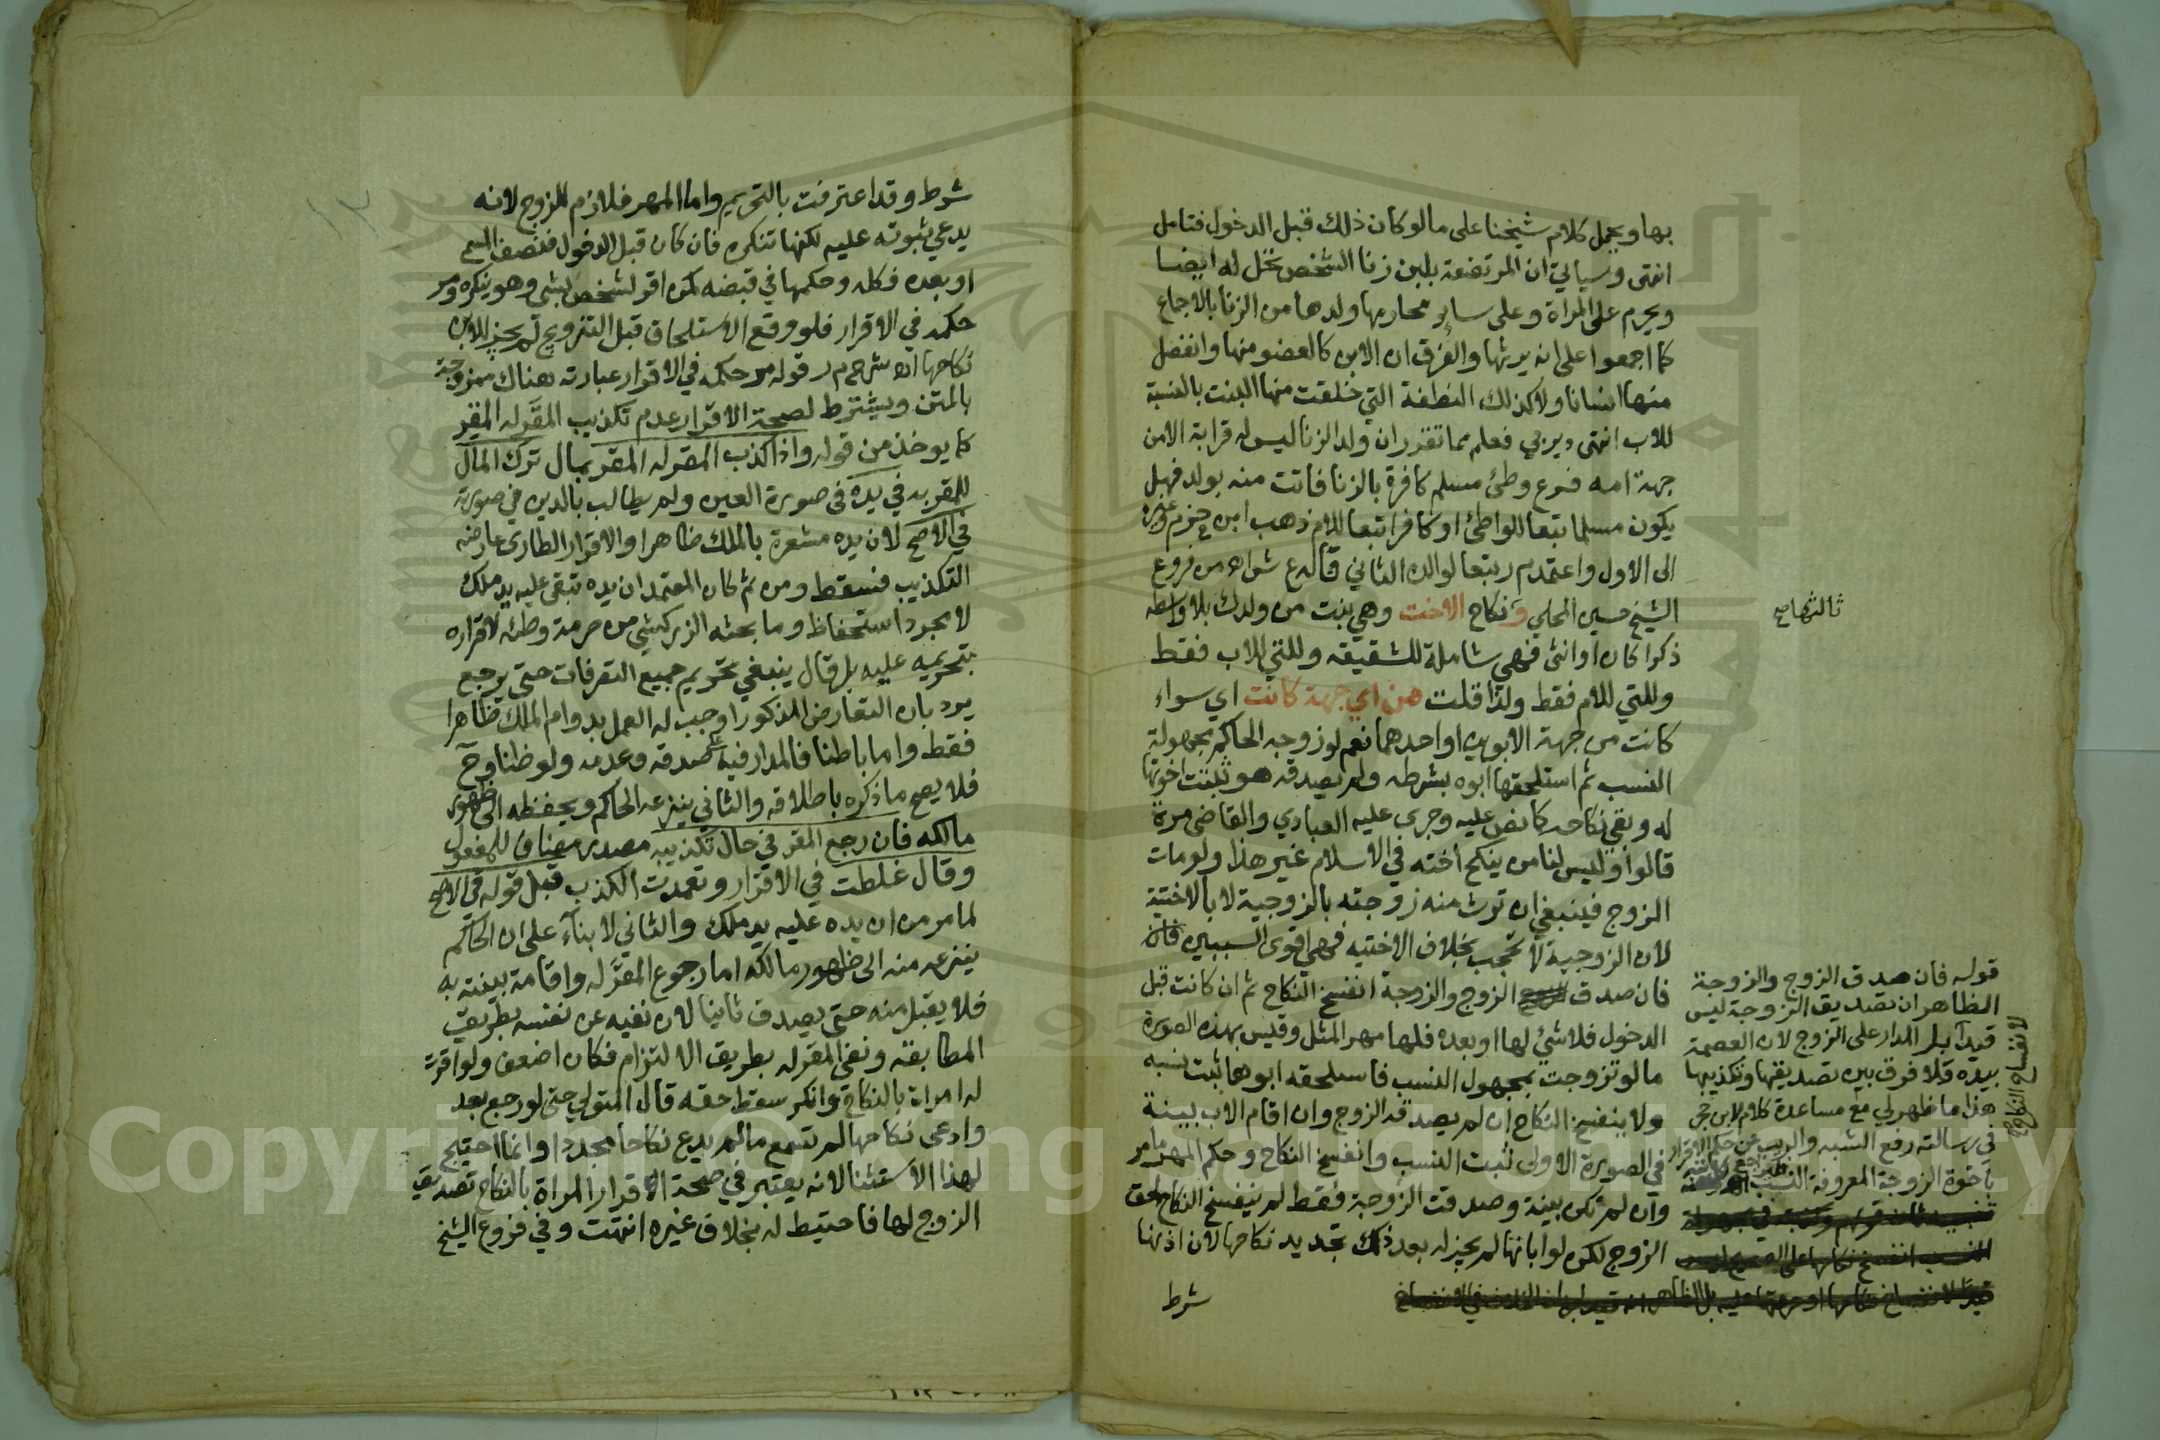 بها ويحمل كلام شيخنا على ما لو كان ذلك قبل الدخول فتامل
انتهى وسياتي ان المرتضعة بلبن زنا الشخص تحل له ايضا
ويحرم على المراة وعلى ساير محارمها ولدها من الزنا بالاجماع
كما اجمعوا على انه يرثها والفرق ان الابن كالعضو منها وانفصل
منها انسانا ولا كذلك النطفة التي خلقت منها البنت بالنسبة
للاب انتهى ديربي فعلم مما تقرر ان ولد الزنا ليس له قرابة الا من
جهة امه فرع وطئ مسلم كافرة بالزنا فاتت منه بولد فهل
يكون مسلما تبعا للواطئ او كافرا تبعا للام ذهب ابن حزم وغيره
الى الاول واعتمد م ر تبعا لوالده الثاني قاله ع ش اه من فروع
الشيخ حسين المحلي و نكاح الاخت وهي بنت من ولدك بلا واسطه
ذكرا كان او انثى فهي شاملة للشقيقه وللتي للاب فقط
وللتي للام فقط ولذا قلت من اي جهة كانت اي سواء
كانت من جهة الابوين او احدهما نعم لو زوجه الحاكم مجهولة
النسب ثم استلحقها ابوه بشرطه ولم يصدقه هو ثبتت اخوتها
له وبقي نكاحه كما نص عليه وجرى عليه العبادي والقاضي مرة
قالوا وليس لنا من ينكح اخته في الاسلام غير هذا ولو مات
الزوج فينبغي ان ترث منه زوجته بالزوجية لا بالاختية
لان الزوجية لا تحجب بخلاف الاختيه فهي اقوى السببين فان
فان صدق الزوج والزوجة انفسخ النكاح ثم ان كانت قبل
الدخول فلا شئ لها او بعده فلها مهر المثل وقيس بهذه الصورة
ما لو تزوجت بمجهول النسب فاستلحقه ابوها ثبت نسبه
ولا ينفسخ النكاح ان لم يصدقه الزوج وان اقام الاب بينة
في الصورة الاولى ثبت النسب وانفسخ النكاح وحكم المهر ما مر
وان لم تكن بينة وصدقت الزوجة فقط لم ينفسخ النكاح لحق
الزوج لكن لو ابانها لم يجز له بعد ذلك تجديد نكاحها لان اذنها
شرط
ثالثها صح
قوله فان صدق الزوج والزوجة
الظاهر ان تصديق الزوجة ليس
قيدا بل المدار على الزوج لان العصمة
بيده فلا فرق بين تصديقها وتكذيبها
هذا ما ظهر لي مع مساعدة كلام لابن حجر
في رسالته رفع الشبه والريب عن حكم الاقرار
باخوة الزوجة المعروفة النسب
لانفساخ النكاح
شرط وقد اعترفت بالتحريم واما المهر فلازم للزوج لانه
يدعي ثبوته عليه لكنها تنكره فان كان قبل الدخول فنصف المسمى
او بعده فكله وحكمها في قبضه كمن اقر لشخص بشي وهو ينكره ومر
حكمه في الاقرار فلو وقع الاستلحاق قبل التزويج لم يجز للابن
نكاحها اه شرح م ر قوله مر حكمه في الاقرار عبارته هناك ممزوجة
بالمتن ويشترط لصحة الاقرار عدم تكذيب المقر له المقر
كما يوخذ من قوله واذا كذب المقر له المقر بمال ترك المال
للمقر به في يده في صورة العين ولم يطالب بالدين في صورته
في الاصح لان يده مشعرة بالملك ظاهرا والاقرار الطارى عارضه
التكذيب فسقط ومن ثم كان المعتمد ان يده تبقى عليه يد ملك
لا مجرد استحفاظ وما بحثه الزركشي من حرمة وطئه لاقراره
بتحريمه عليه بل قال ينبغي تحريم جميع التصرفات حتى يرجع
يرد بان التعارض المذكور اوجب له العمل بدوام الملك ظاهرا
فقط واما باطنا فالمدار فيه على صدقه وعدمه ولو ظنا وح
فلا يصح ما ذكره باطلاقه والثاني ينزعه الحاكم ويحفظه الى ظهور
مالكه فان رجع المقر في حال تكذيبه مصدر مضاف للمفعول
وقال غلطت في الاقرار او تعمدت الكذب قبل قوله في الاصح
لما مر من ان يده عليه يد ملك والثاني لا بناء على ان الحاكم
ينزعه منه الى ظهور مالكه اما رجوع المقر له واقامة بينته به
فلا يقبل منه حتى يصدق ثانيا لان نفيه عن نفسه بطريق
المطابقه ونفي المقر له بطريق الالتزام فكان اضعف ولو اقرت
له امراة بالنكاح وانكر سقط حقه قال المتولي حتى لو رجع بعد
وادعى نكاحها لم تسمع ما لم يدع نكاحا مجددا وانما احتيج
لهذا الاستثنا لانه يعتبر في صحة اقرار المراة بالنكاح تصديق
الزوج لها فاحتيط له بخلاف غيره انتهت وفي فروع الشيخ
Copyright © King Saud University